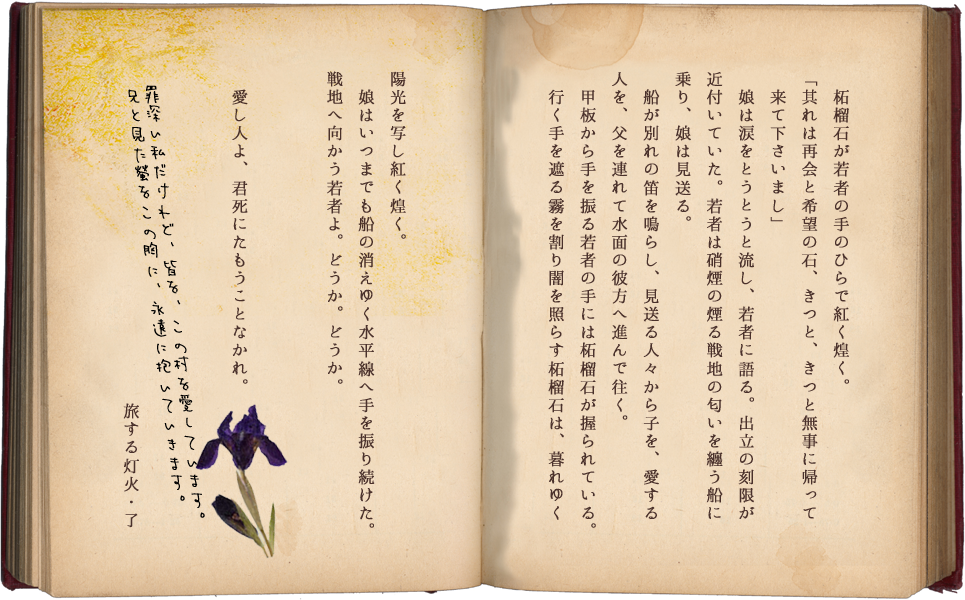 柘榴石が若者の手のひらで紅く煌く。
「其れは再会と希望の石、きっと、きっと無事に帰って
来て下さいまし」
娘は涙をとうとうと流し、若者に語る。出立の刻限が
近付いていた。若者は硝煙の煙る戦地の匂いを纏う船に
乗り、娘は見送る。
船が別れの笛を鳴らし、見送る人々から子を、愛する
人を、父を連れて水面の彼方へ進んで往く。
甲板から手を振る若者の手には柘榴石が握られている。
行く手を遮る霧を割り闇を照らす柘榴石は、暮れゆく
陽光を写し紅く煌く。
娘はいつまでも船の消えゆく水平線へ手を振り続けた。
戦地へ向かう若者よ。どうか。どうか。
愛し人よ、君死にたもうことなかれ。
罪深い私だけれど、皆を、この村を愛しています。
兄と見た螢をこの胸に、永遠に抱いていきます。
旅する灯火・了